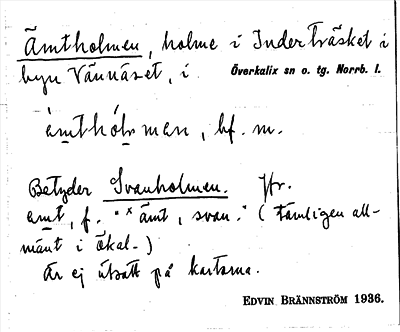 Ämtholmen, holme i Inderträsket i
byn Vännäset, i. Överkalix sn o. tg. Norrb. l.
ámthólmen, bf. m.
Betyder Svanholmen. Jfr.
amt, f. "ˣämt, svan." (tämligen all-
mänt i ökal-)
Är ej utsatt på kartorna.
EDVIN BRÄNNSTRÖM 1936.